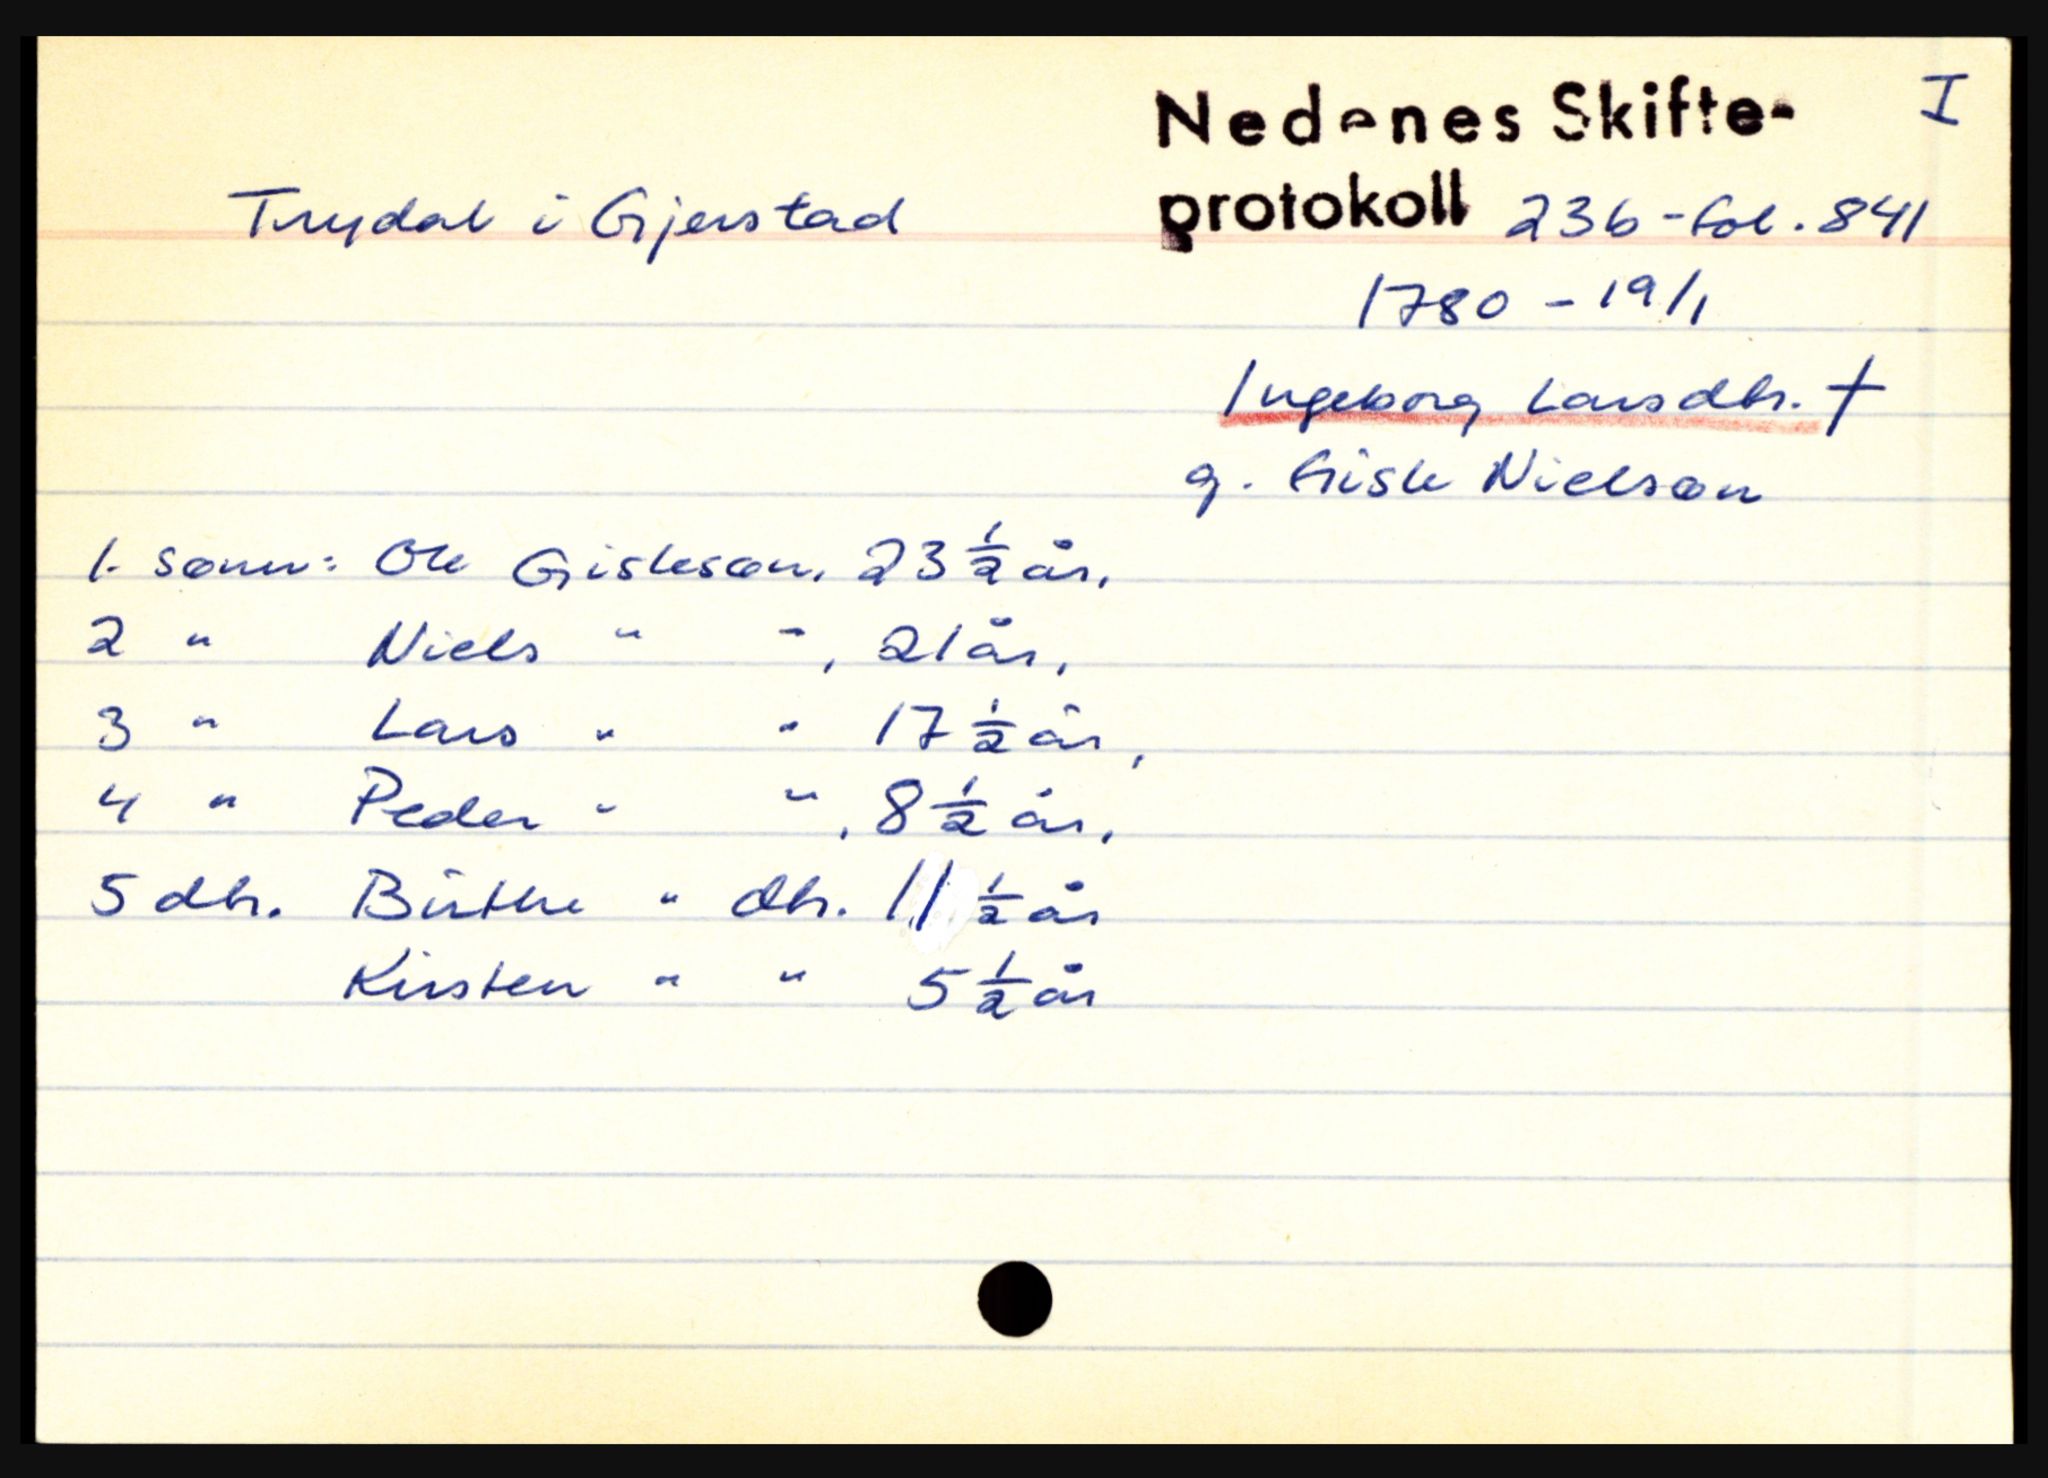 I
Nedenes Skifte-
protokoll 23b - fol. 841
Trydal i Gjerstad
1780 - 19/1
Ingeborg Larsdtr. †
g. Gisle Nielsøn
1. sønn: Ole Gislesøn, 23 ½ år,
2 " Niels " ", 21 år,
3 " Lars " " 17 ½ år,
4 " Peder " ", 8 ½ år,
5 dtr. Birthe " dtr. 11 ½ år
Kirsten " " 5 ½ år